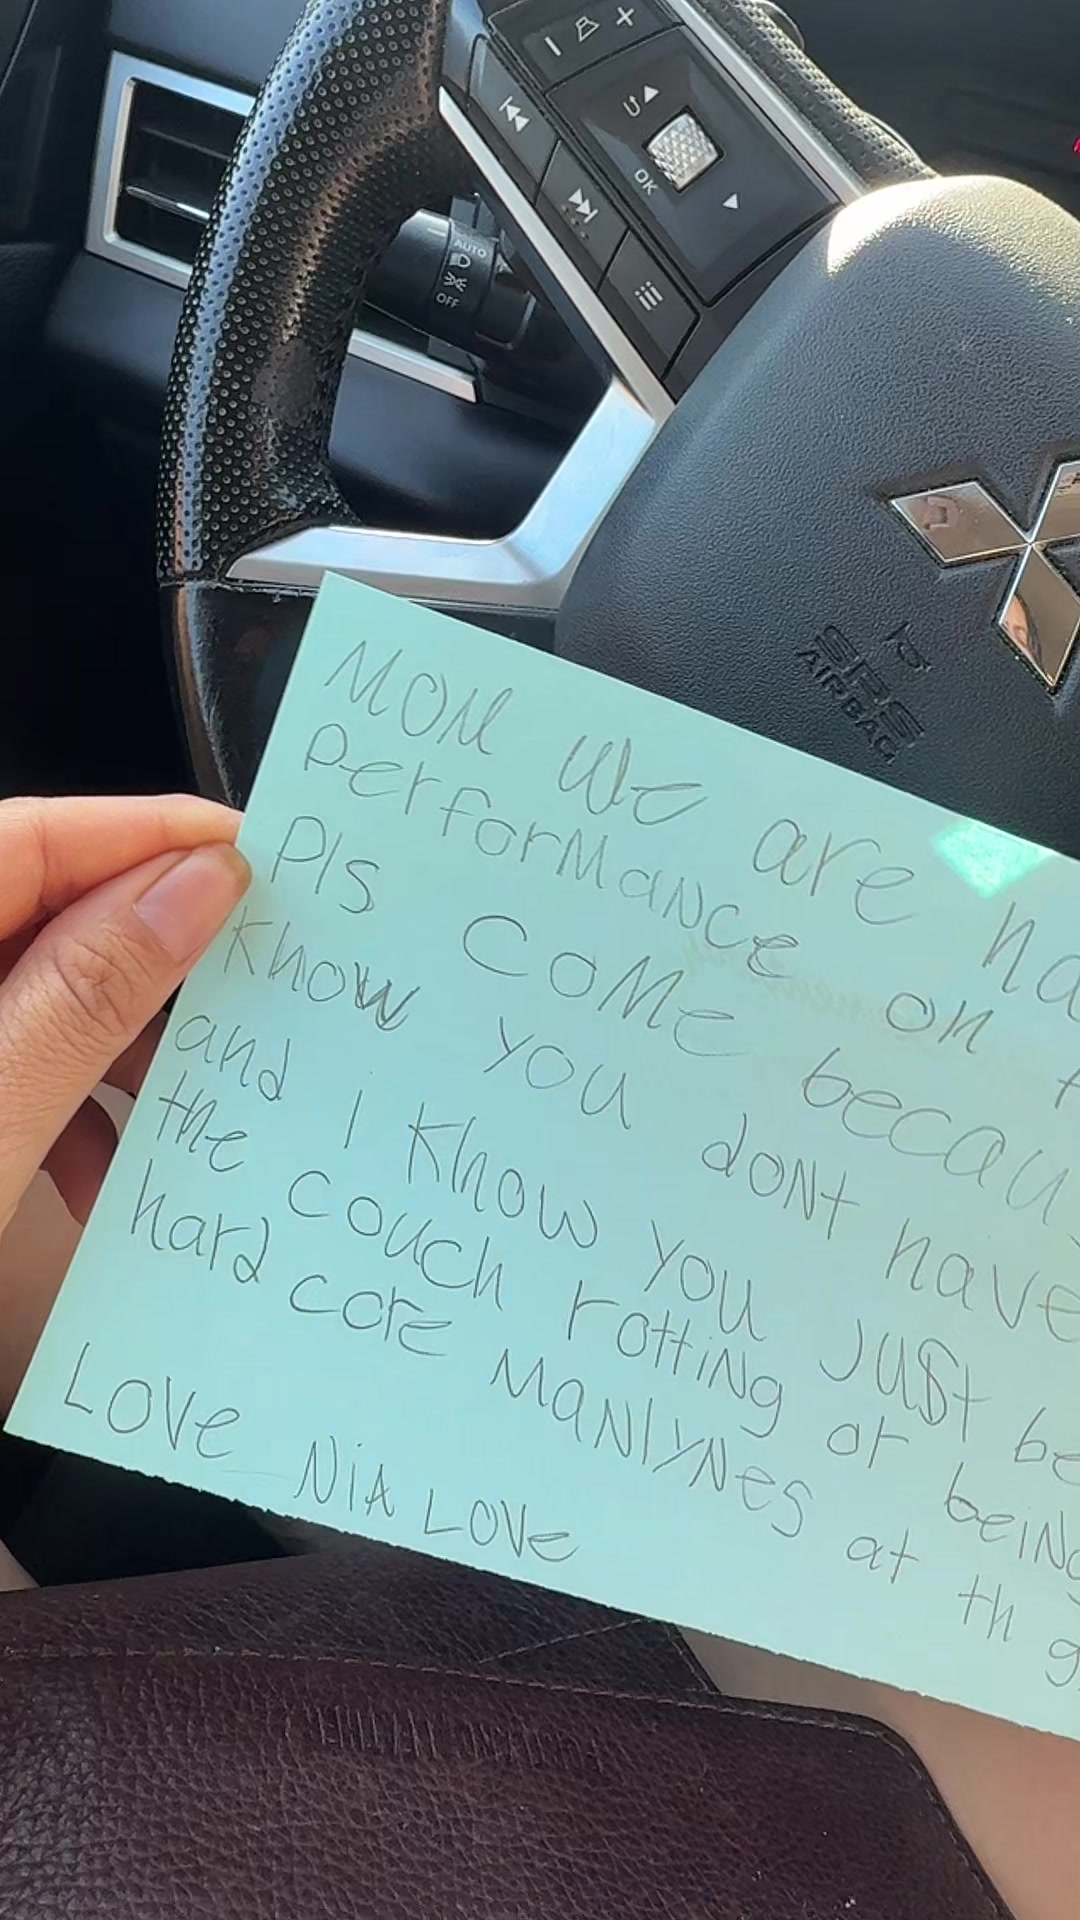 − +
OK
AUTO
OFF
SRS
AIRBAG
MOM We are ha
Performance on
Pls come becau
Know you dont have
and i Know you just be
the couch rotting or being
hard core manlynes at th g
Love Nia Love